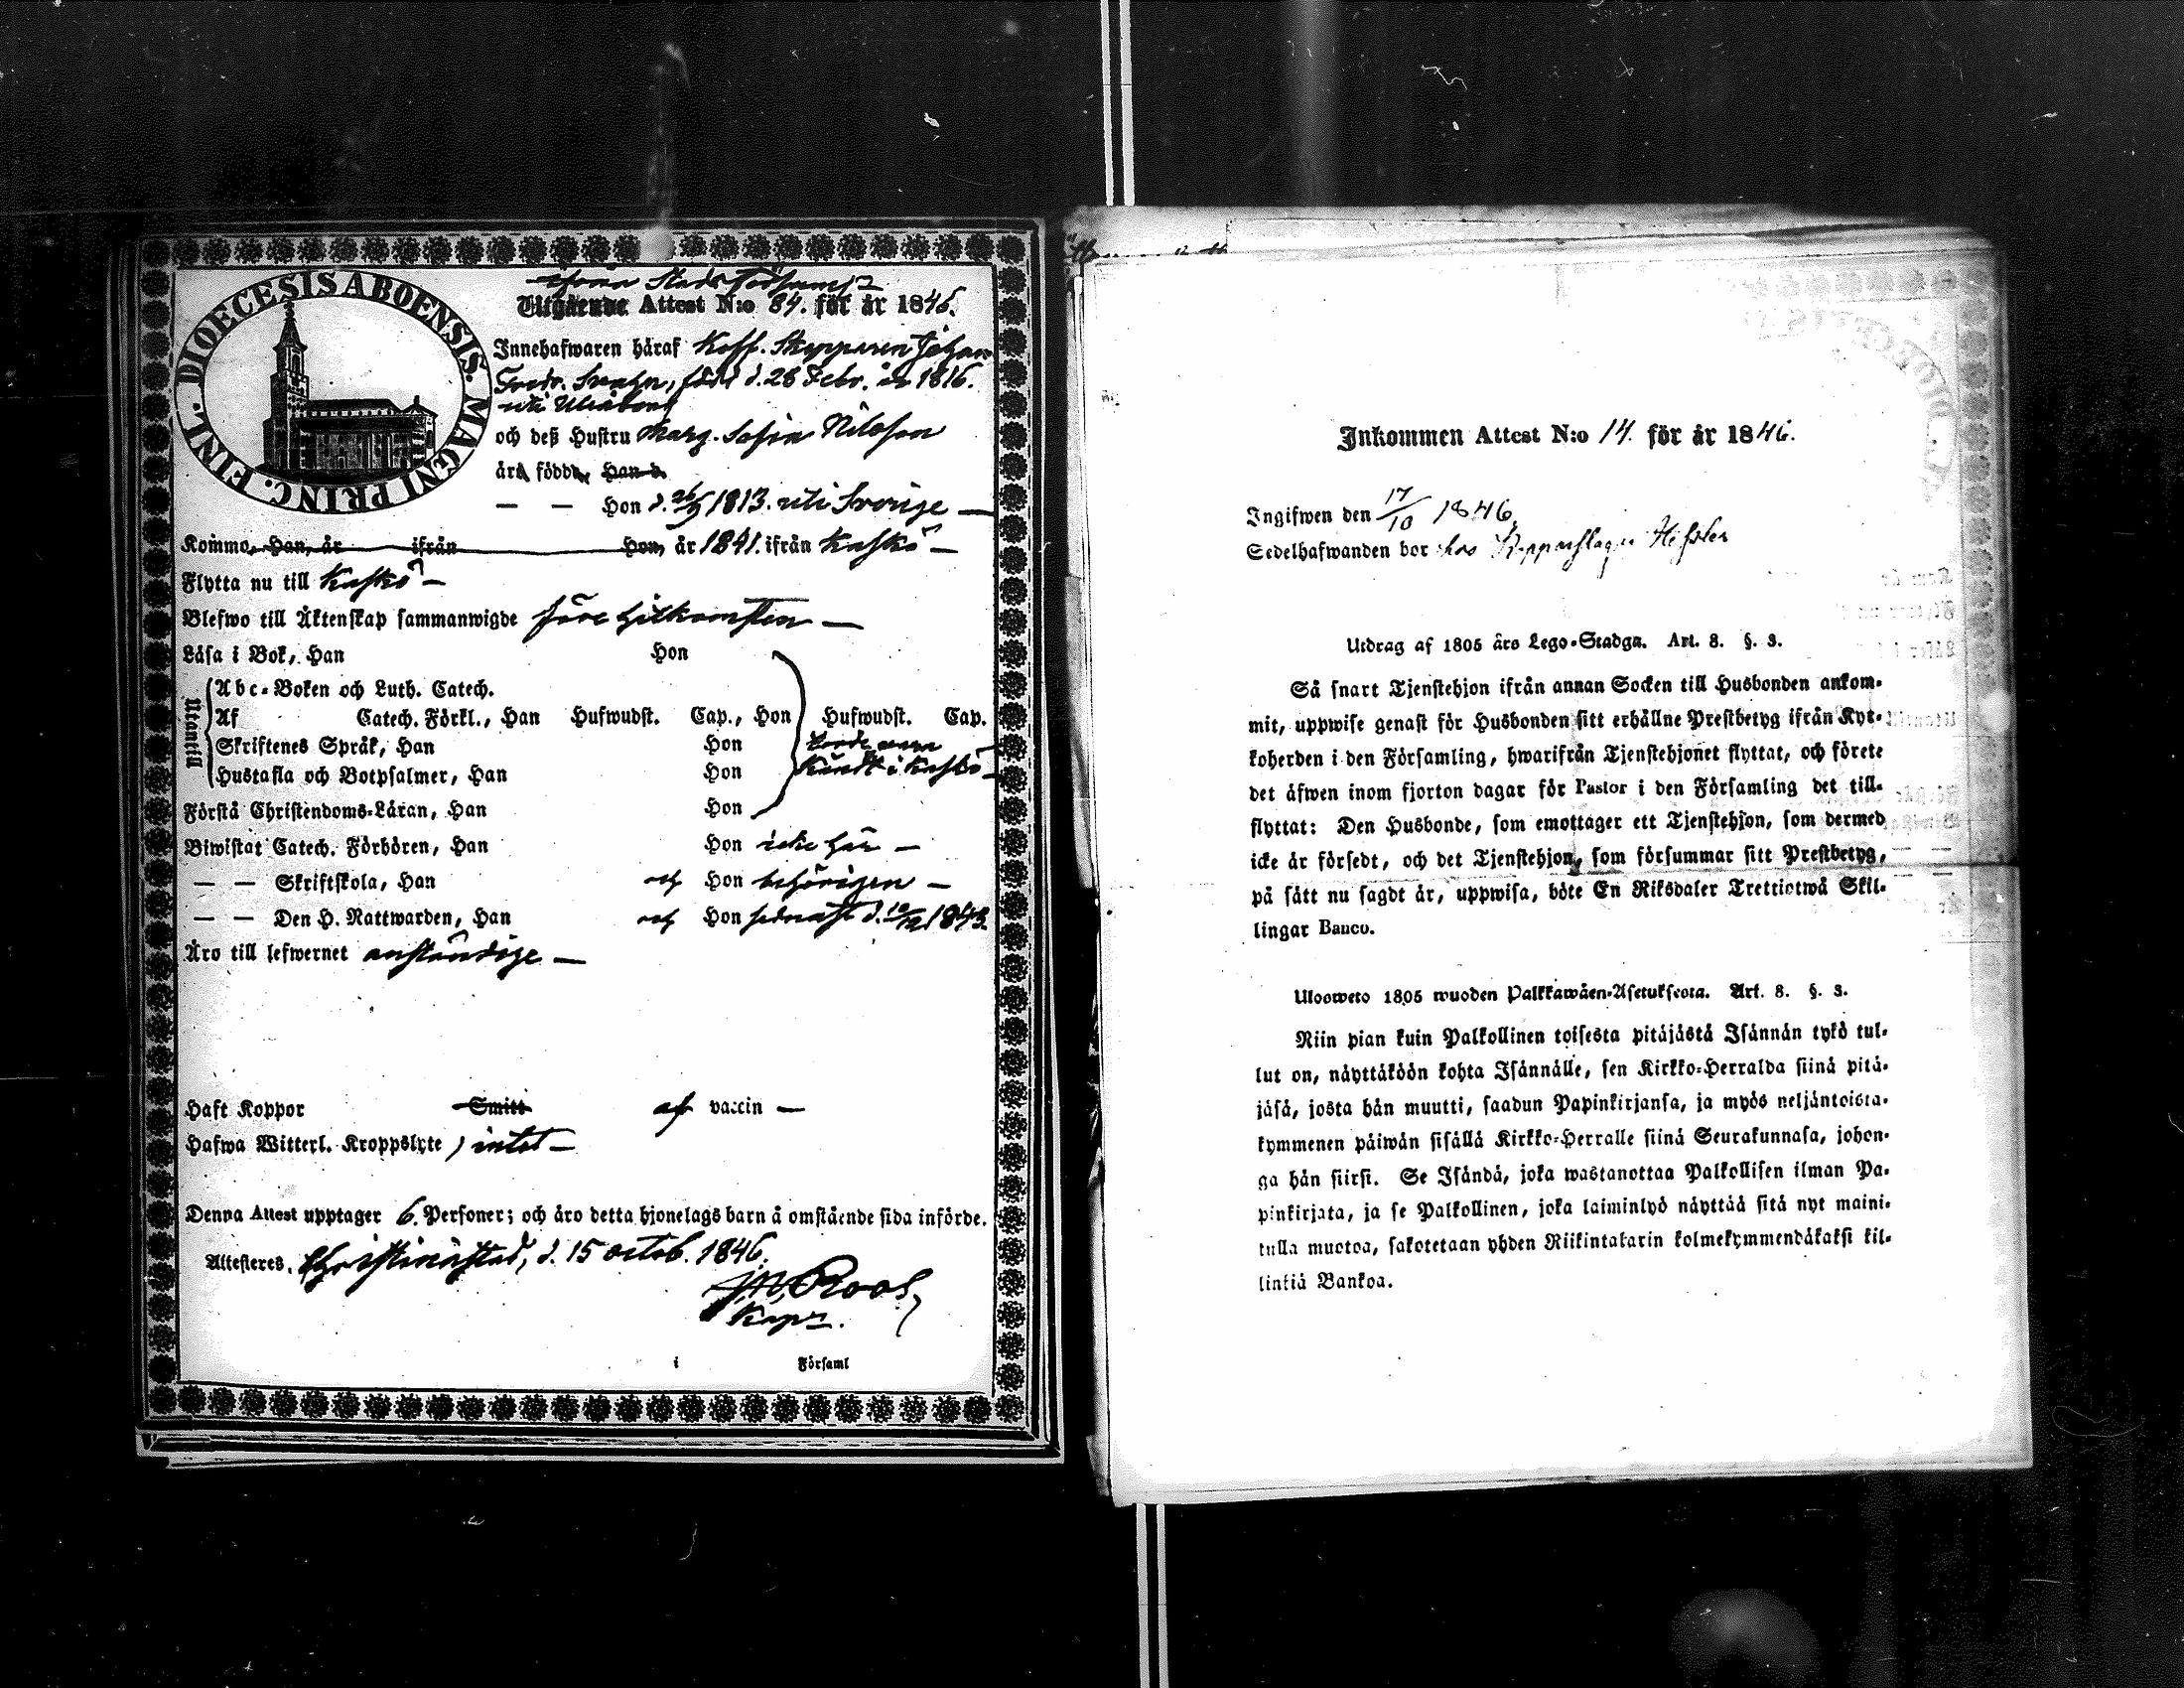 DIOECESIS ABOENSIS. MAGNI PRINC. FINL.
Utgående Attest N:o 84. för år 1846.
Innehafwaren häraf Koff. Skepparen Johan
Fredr. Svahn, född d. 28 Febr. år 1816.
uti Uleåborg
och deß Hustru Marg. Sofia Nilsson
äro födde, Han d.
— — Hon d. 26/9 1813. uti Sverige —
Kommo, Han, år ifrån Hon, år 1841. ifrån Kaskö —
Flytta nu till Kaskö —
Blefwo till Äktenskap sammanwigde före hitkomsten —
Läsa i Bok, Han Hon
Utantill
Abc-Boken och Luth. Catech.
Af Catech. Förkl., Han Hufwudst. Cap., Hon Hufwudst. Cap.
Skriftenes Språk, Han Hon borde vara
Hustafla och Botpsalmer, Han Hon kändt i Kaskö —
Förstå Christendoms-Läran, Han Hon
Biwistat Catech. Förhören, Han Hon icke här —
— — Skriftskola, Han och Hon behörigen —
— — Den H. Nattwarden, Han och Hon sednast d. 10/12 1843.
Äro till lefwernet anständige —
Haft Koppor Smitt af vaccin —
Hafwa Witterl. Kroppslyte, intet —
Denna Attest upptager 6. Personer; och äro detta hjonelags barn å omstående sida införde.
Attesteres, Christinæstad, d. 15 octob. 1846.
J. W. Roos,
Kapn.
i Församl
Inkommen Attest N:o 14. för år 1846.
Ingifwen den 17/10 1846
Sedelhafwanden bor hos Kopparslagar Hissler
Utdrag af 1805 års Lego-Stadga. Art. 8. §. 3.
Så snart Tjenstehjon ifrån annan Socken till Husbonden ankom-
mit, uppwise genast för Husbonden sitt erhållne Prestbetyg ifrån Kyr-
koherden i den Församling, hwarifrån Tjenstehjonet flyttat, och förete
det äfwen inom fjorton dagar för Pastor i den Församling det till-
flyttat: Den Husbonde, som emottager ett Tjenstehjon, som dermed
icke är försedt, och det Tjenstehjon, som försummar sitt Prestbetyg,
på sätt nu sagdt är, uppwisa, böte En Riksdaler Trettiotwå Skil-
lingar Banco.
Ulosweto 1805 wuoden Palkkawäen-Asetuksesta. Art. 8. §. 3.
Niin pian kuin Palkollinen toisesta pitäjästä Isännän tykö tul-
lut on, näyttäköön kohta Isännälle, sen Kirkko-Herralda siinä pitä-
jäsä, josta hän muutti, saadun Papinkirjansa, ja myös neljäntoista-
kymmenen päiwän sisällä Kirkko-Herralle siinä Seurakunnasa, johon-
ga hän siirsi. Se Isändä, joka wastanottaa Palkollisen ilman Pa-
pinkirjata, ja se Palkollinen, joka laiminlyö näyttää sitä nyt maini-
tulla muotoa, sakotetaan yhden Riikintalarin kolmekymmendäkaksi kil-
linkiä Bankoa.